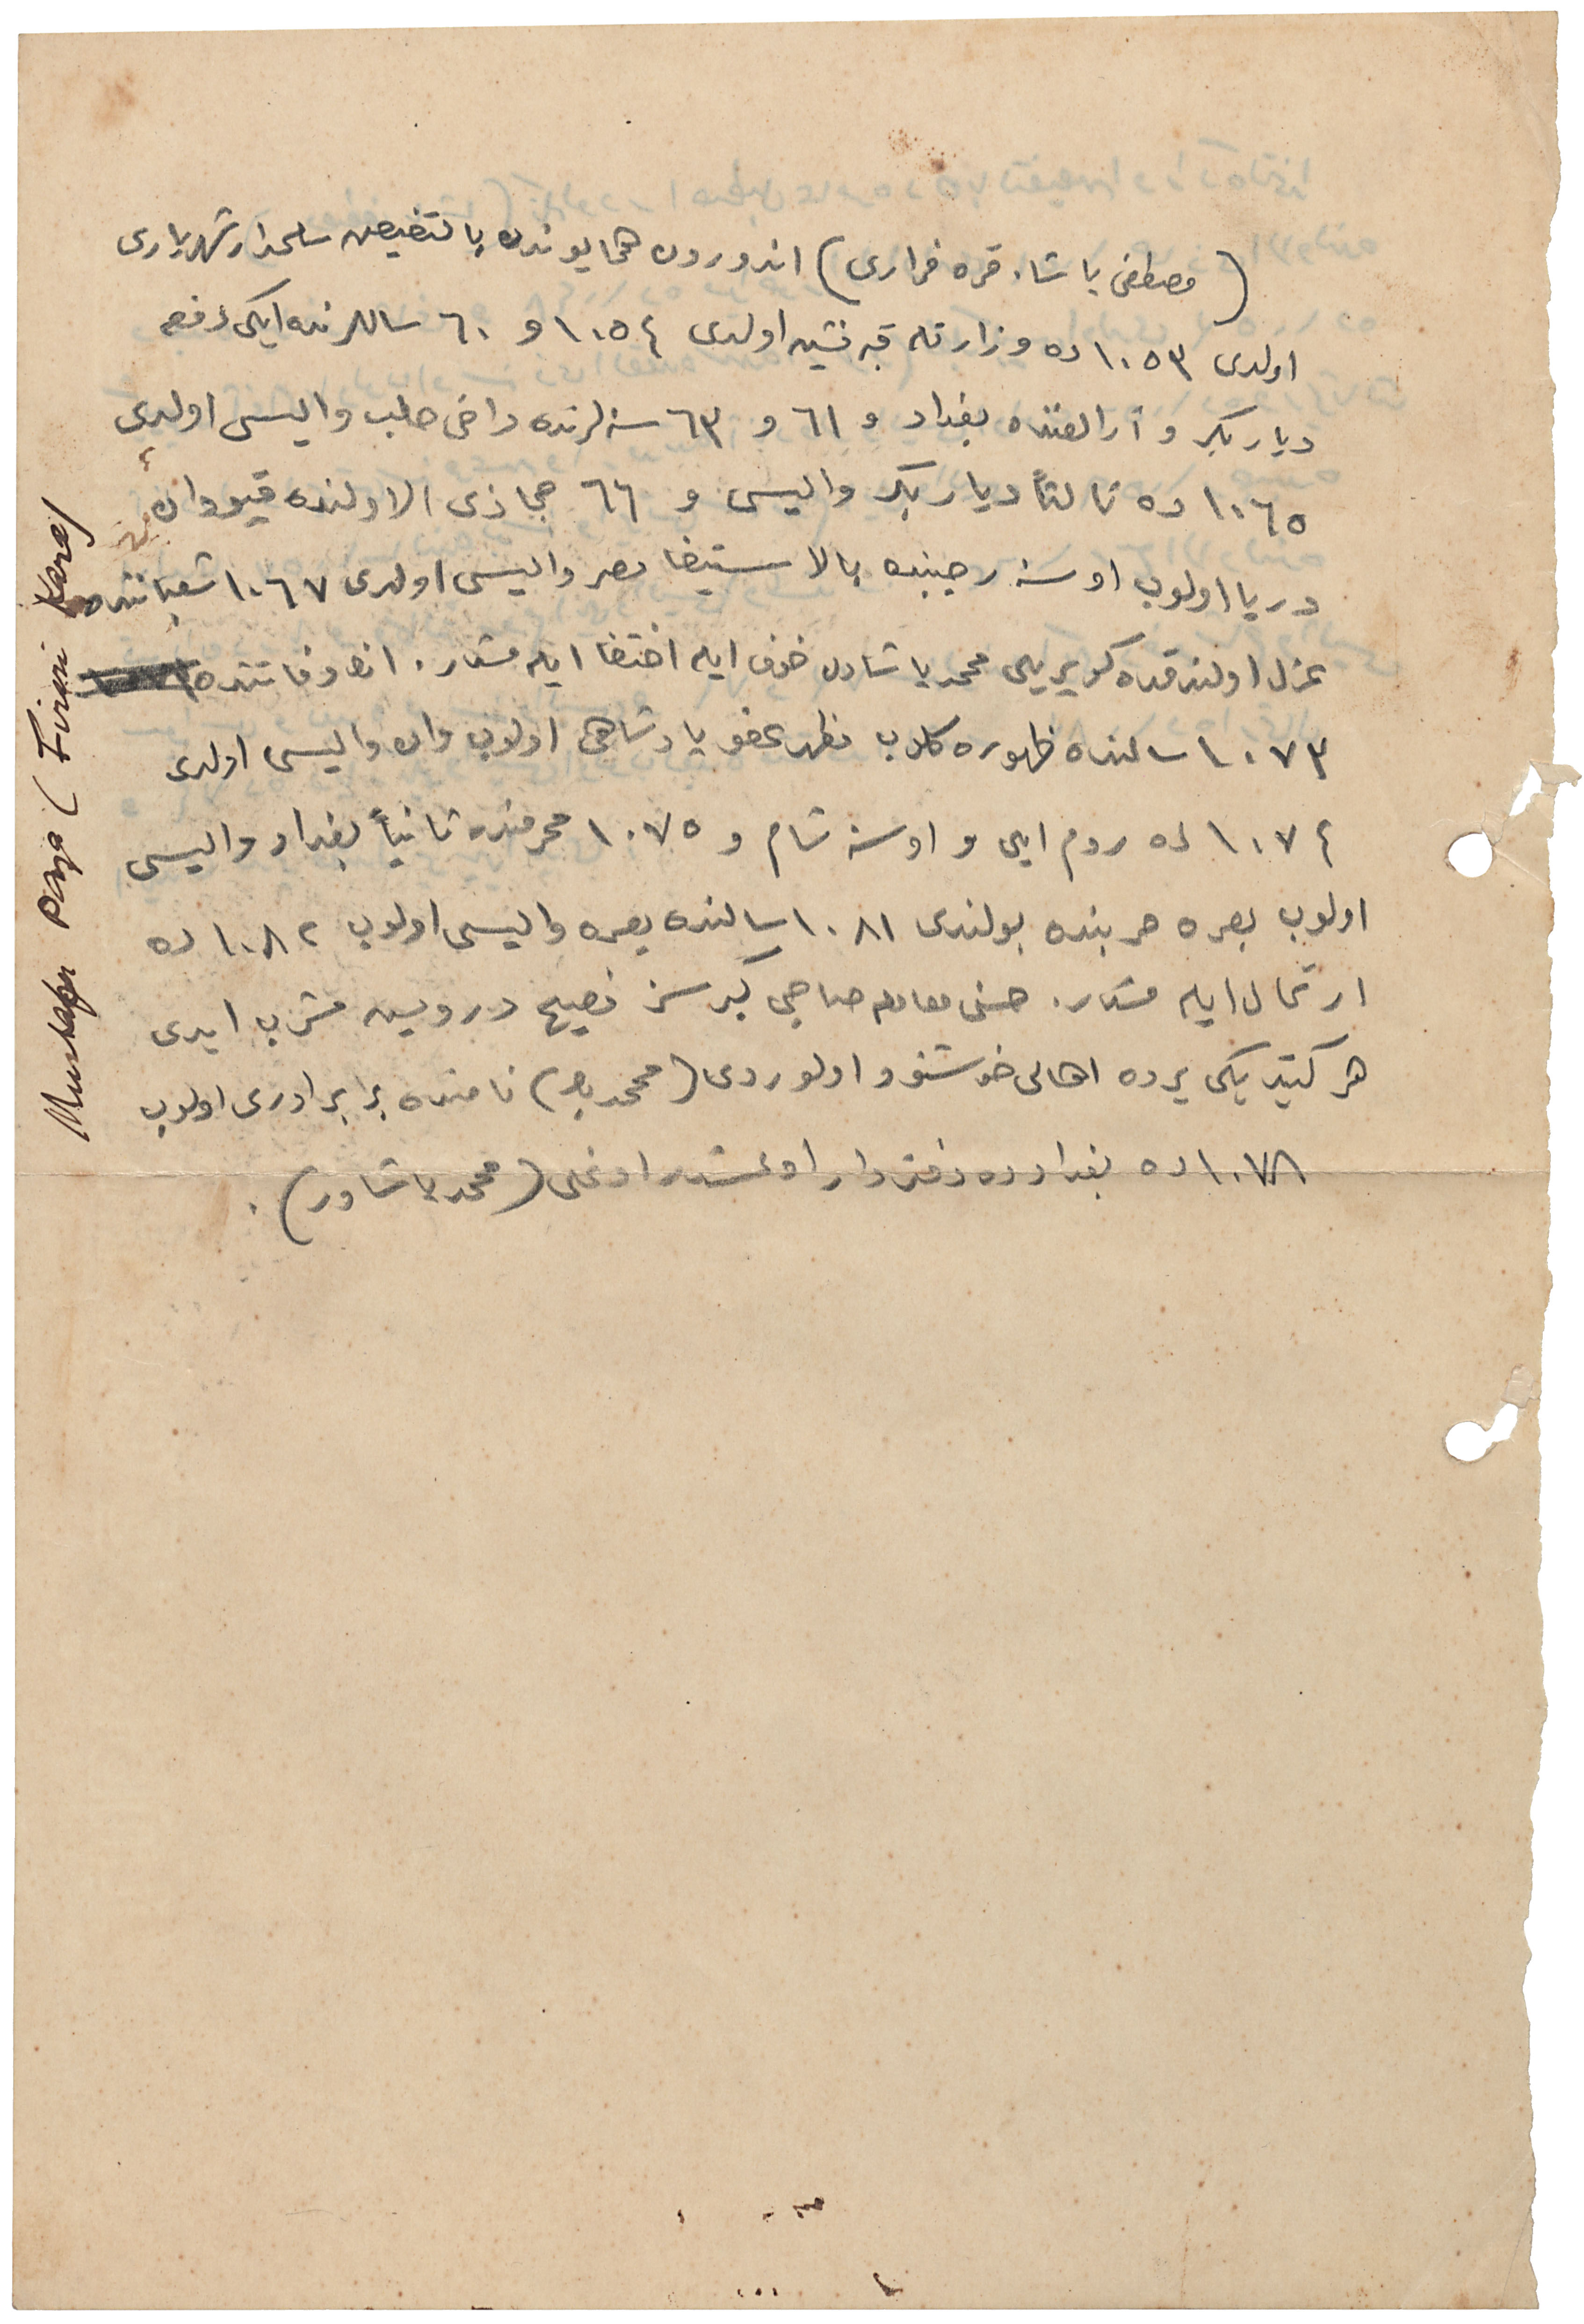 (مصطفى پاشا. قره فرارى) اندرون همايوندن بالتفيض سلحدار شهريارى
اولدى ١٠٥٣ ده وزارتله قبه نشين اولدى ١٠٥٤ و ٦٠ ساللرنده ايكى دفعه
ديار بكر و آرالقده بغداد و ٦١ و ٦٣ سنه لرنده داخى حلب واليسى اولدى
١٠٦٥ ده ثالثاً ديار بكر واليسى و ٦٦ جماذى الاولنده قپودان
دريا اولوب او سنه رجبنده بالاستيفا مصر واليسى اولدى ١٠٦٧ شعباننده
عزل اولندقده كوپريلى محمد پاشادن خوف ايله اختفا ايله مشدر. انك وفاتنده
١٠٧٣ سالنده ظهوره كلوب مظهر عفو پادشاهى اولوب وان واليسى اولدى
١٠٧٤ ده روم ايلى و او سنه شام و ١٠٧٥ محرمنده ثانياً بغداد واليسى
اولوب بصره حربنده بولندى ١٠٨١ سالنده بصره واليسى اولوب ١٠٨٢ ده
ارتحال ايله مشدر. حسنى معامله صاحبى كبرسز فصيح درويش مشرب ايدى
هر كتديكى يرده اهالى خوشنود اولوردى (محمد بك) نامنده بر برادرى اولوب
١٠٧٨ ده بغدادده دفتردار اولمشدر اوغلى (محمد پاشادر).
Mustafa Paşa (Firari Kara)